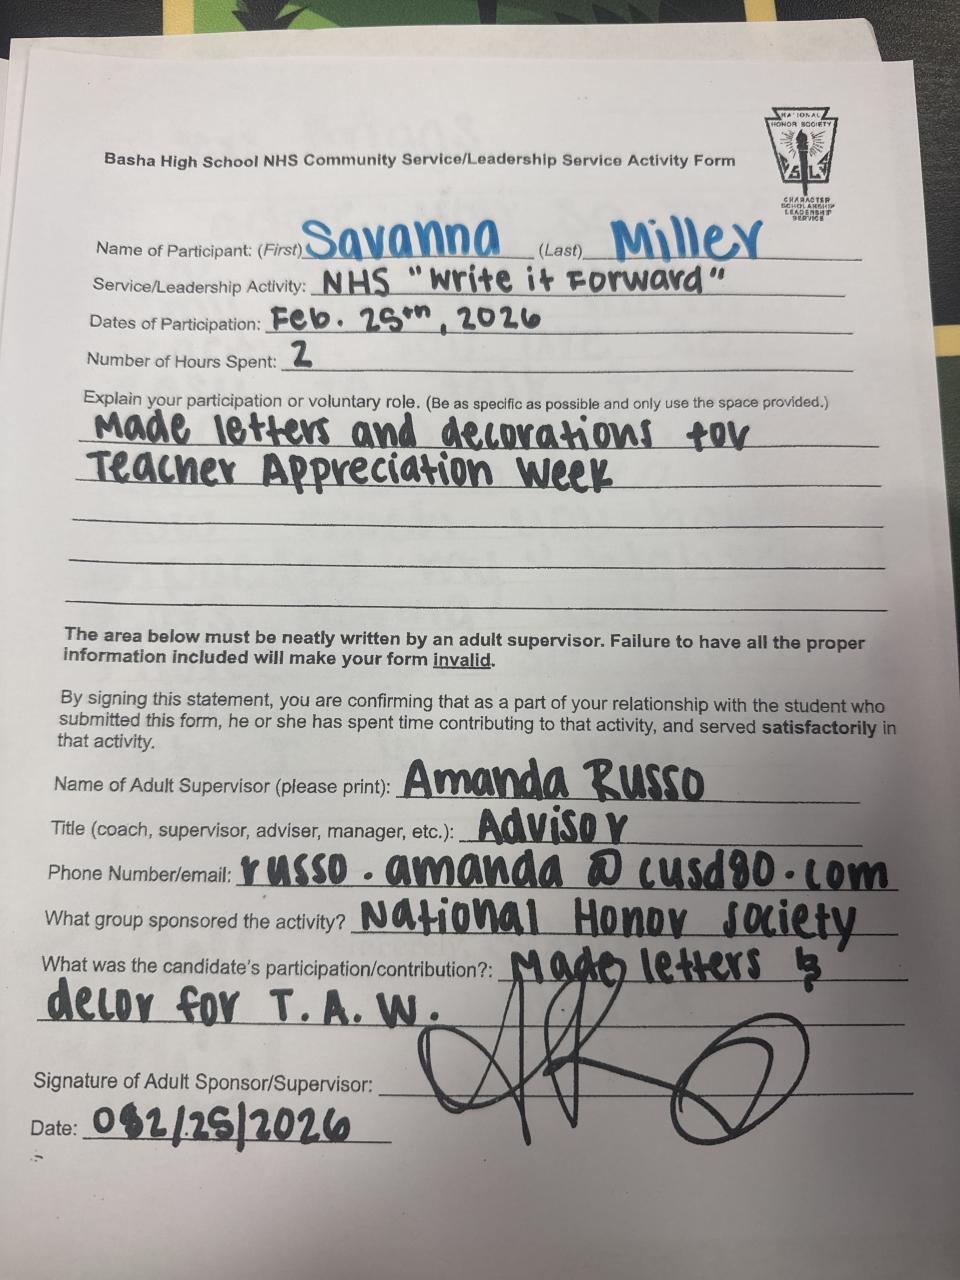 NATIONAL
HONOR SOCIETY
S L
CHARACTER
SCHOLARSHIP
LEADERSHIP
SERVICE
Basha High School NHS Community Service/Leadership Service Activity Form
Name of Participant: (First) Savanna (Last) Miller
Service/Leadership Activity: NHS "Write it Forward"
Dates of Participation: Feb. 25th, 2026
Number of Hours Spent: 2
Explain your participation or voluntary role. (Be as specific as possible and only use the space provided.)
Made letters and decorations for
Teacher Appreciation Week
The area below must be neatly written by an adult supervisor. Failure to have all the proper
information included will make your form invalid.
By signing this statement, you are confirming that as a part of your relationship with the student who
submitted this form, he or she has spent time contributing to that activity, and served satisfactorily in
that activity.
Name of Adult Supervisor (please print): Amanda Russo
Title (coach, supervisor, adviser, manager, etc.): Advisor
Phone Number/email: russo.amanda@cusd80.com
What group sponsored the activity? National Honor Society
What was the candidate's participation/contribution?: Made letters &
decor for T. A. W.
Signature of Adult Sponsor/Supervisor:
Date: 02/25/2026